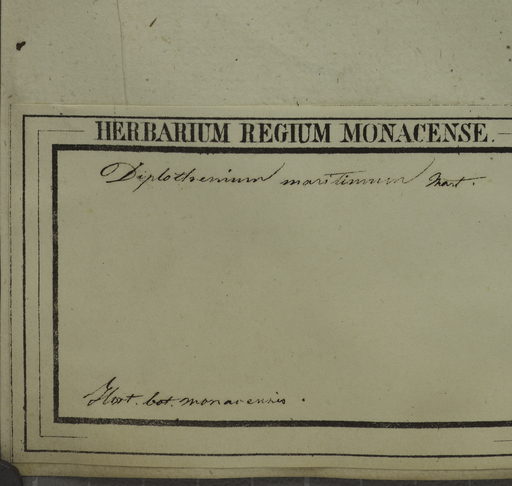 HERBARIUM REGIUM MONACENSE.
Diplothemium maritimum Mart.
Hort. bot. monacensis.